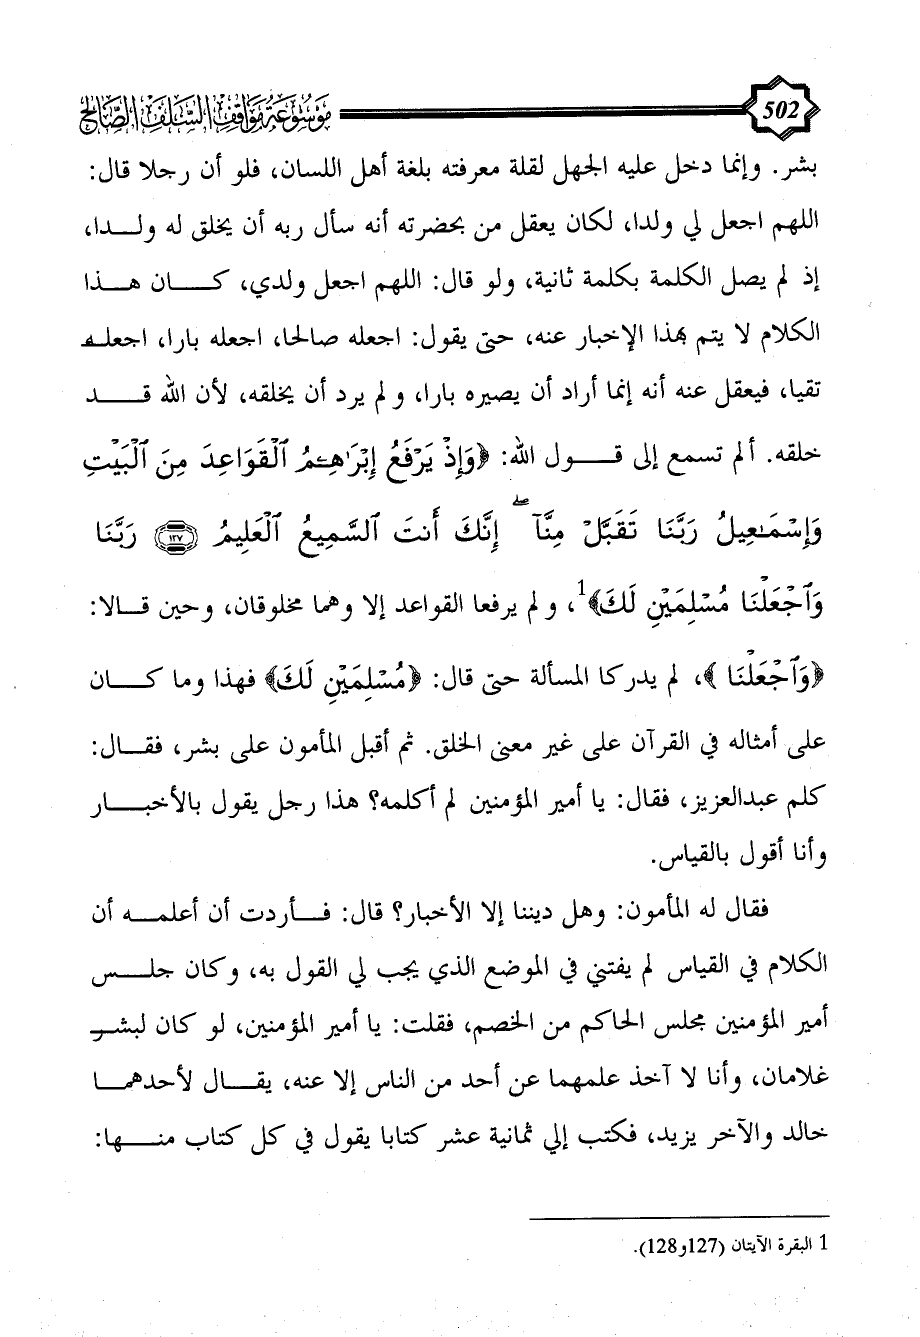 موسوعة مواقف السلف الصالح 502
بشر. وإنما دخل عليه الجهل لقلة معرفته بلغة أهل اللسان، فلو أن رجلا قال:
اللهم اجعل لي ولدا، لكان يعقل من بحضرته أنه سأل ربه أن يخلق له ولدا،
إذ لم يصل الكلمة بكلمة ثانية، ولو قال: اللهم اجعل ولدي، كان هذا
الكلام لا يتم بهذا الإخبار عنه، حتى يقول: اجعله صالحا، اجعله بارا، اجعله
تقيا، فيعقل عنه أنه إنما أراد أن يصيره بارا، ولم يرد أن يخلقه، لأن الله قد
خلقه. ألم تسمع إلى قول الله: ﴿وَإِذْ يَرْفَعُ إِبْرَٰهِـۧمُ ٱلْقَوَاعِدَ مِنَ ٱلْبَيْتِ
وَإِسْمَـٰعِيلُ رَبَّنَا تَقَبَّلْ مِنَّآ ۖ إِنَّكَ أَنتَ ٱلسَّمِيعُ ٱلْعَلِيمُ ۝١٢٧ رَبَّنَا
وَٱجْعَلْنَا مُسْلِمَيْنِ لَكَ﴾1، ولم يرفعا القواعد إلا وهما مخلوقان، وحين قالا:
﴿وَٱجْعَلْنَا﴾، لم يدركا المسألة حتى قال: ﴿مُسْلِمَيْنِ لَكَ﴾ فهذا وما كان
على أمثاله في القرآن على غير معنى الخلق. ثم أقبل المأمون على بشر، فقال:
كلم عبدالعزيز، فقال: يا أمير المؤمنين لم أكلمه؟ هذا رجل يقول بالأخبار
وأنا أقول بالقياس.
فقال له المأمون: وهل ديننا إلا الأخبار؟ قال: فأردت أن أعلمه أن
الكلام في القياس لم يفتني في الموضع الذي يجب لي القول به، وكان جلس
أمير المؤمنين مجلس الحاكم من الخصم، فقلت: يا أمير المؤمنين، لو كان لبشر
غلامان، وأنا لا آخذ علمهما عن أحد من الناس إلا عنه، يقال لأحدهما
خالد والآخر يزيد، فكتب إلي ثمانية عشر كتابا يقول في كل كتاب منها:
1 البقرة الآيتان (127و128).